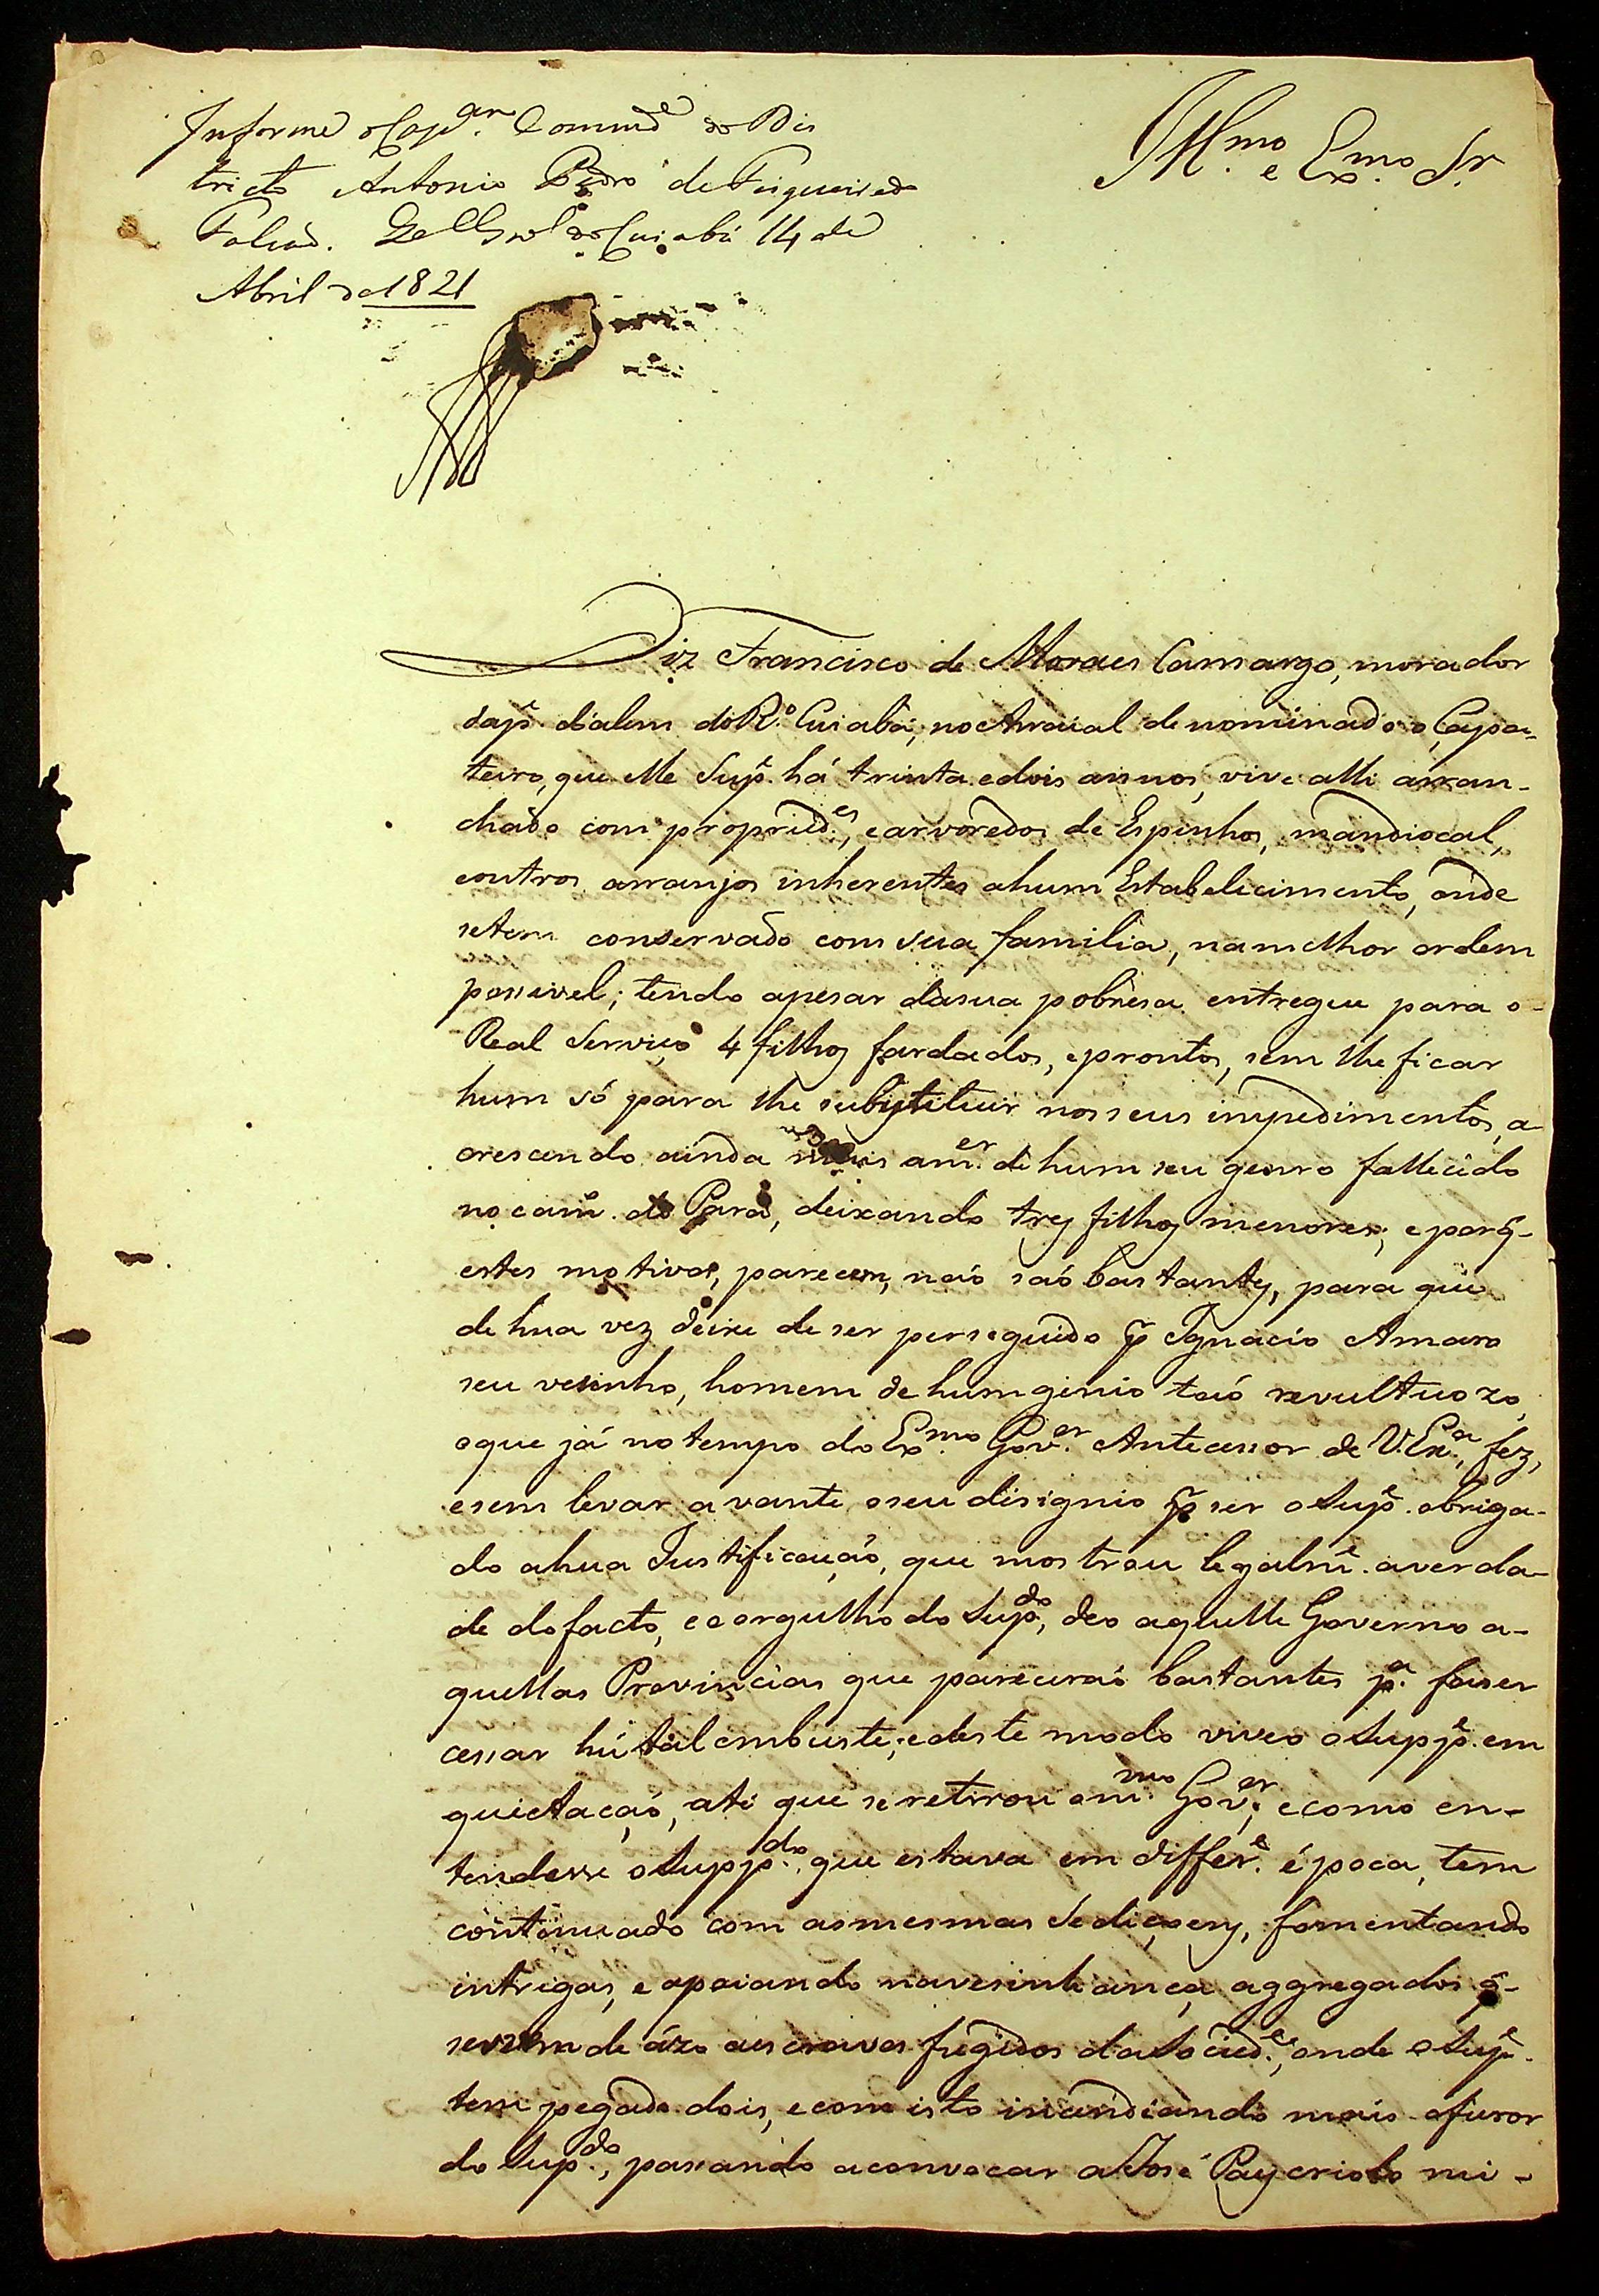 Informe o Cap.am Commd.e do Dis
tricto Antonio Pedro de Figueiredo
Falcaõ. Q.el G.al do Cuiabá 14 de
Abril de 1821
Ill.mo e Ex.mo Sr.
Diz Francisco de Moraes Camargo, morador
da p.e d'alem do R.o Cuiabá, no Arraial denominado o, Çapa-
teiro, que elle Sup.e há trinta e dois annos, vive alli arran-
chado com propried.es, e arvoredos de Espinhos, mandiocal,
e outros arranjos inherentes a hum Estabelicimento, onde
se tem conservado com sua familia, na melhor ordem
possivel; tendo apesar da sua pobresa entregue para o
Real Serviço 4 filhos fardados, e prontos, sem lhe ficar
hum só para lhe substituir nos seus impedimentos, a
crescendo ainda mais a m.er de hum seu genro fallecido
no cam.o do Pará, deixando tres filhos menores; e porq̃
estes motivos, parecem, naõ saõ bastantes, para que
de hua vez deixe de ser perseguido p.r Ignacio Amaro
seu vesinho, homem de hum genio taõ revultuozo,
o que já no tempo do Ex.mo Gov.er Antecessor de V. Ex.a, fez,
e sem levar avante o seu disignio p.r ser o Sup.e obriga-
do a hua Justificaçaõ, que mostrou legalm.e a verda-
de do facto, e o orgulho do Sup.do, deo aquelle Governo a-
quellas Providencias que pareceraõ bastantes p.a faser
cessar hũ tal embuste; e deste modo viveo o Supp.e em
quietaçaõ, até que se retirou o m.mo Gov.er, e como en-
tendesse o Supp.do, que estava em differ.e época, tem
continuado com as mesmas Sediçoens, fomentando
intrigas, e apoiando na vesinhança aggregados q̃
servem de ázo aescravos fugidos da Socied.e, onde o Sup.e
tem pegado dois, e com isto incandiando mais o furor
do Sup.do, passando a convocar a José Paz criolo mi-